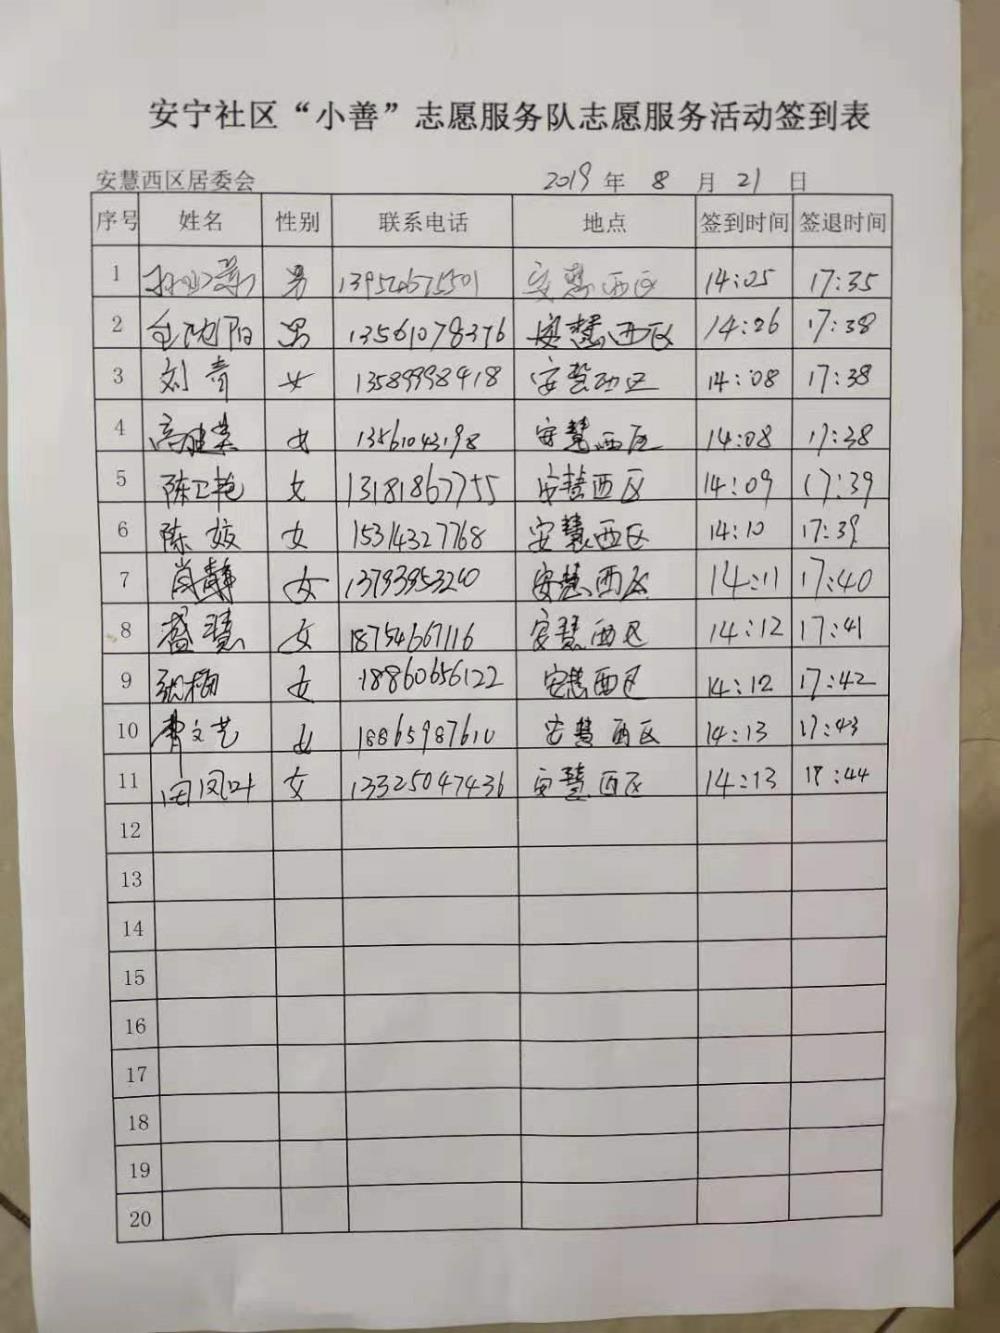 安宁社区“小善”志愿服务队志愿服务活动签到表
安慧西区居委会 2019 年 8 月 21 日
序号 姓名 性别 联系电话 地点 签到时间 签退时间
1 男 安慧西区 14:05 17:35
2 男 13561078376 安慧西区 14:06 17:38
3 刘青 女 13589998418 安慧西区 14:08 17:38
4 高继英 女 13561043198 安慧西区 14:08 17:38
5 陈卫艳 女 13181867755 安慧西区 14:09 17:39
6 陈姣 女 15314327768 安慧西区 14:10 17:39
7 肖静 女 13793953240 安慧西区 14:11 17:40
8 盛慧 女 18754667116 安慧西区 14:12 17:41
9 张梅 女 18860656122 安慧西区 14:12 17:42
10 曹文艺 女 18865987610 安慧西区 14:13 17:43
11 田凤叶 女 13325047436 安慧西区 14:13 18:44
12
13
14
15
16
17
18
19
20